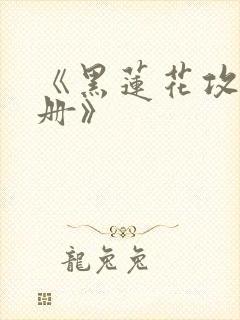 《黑蓮花攻
册》
龍兔兔